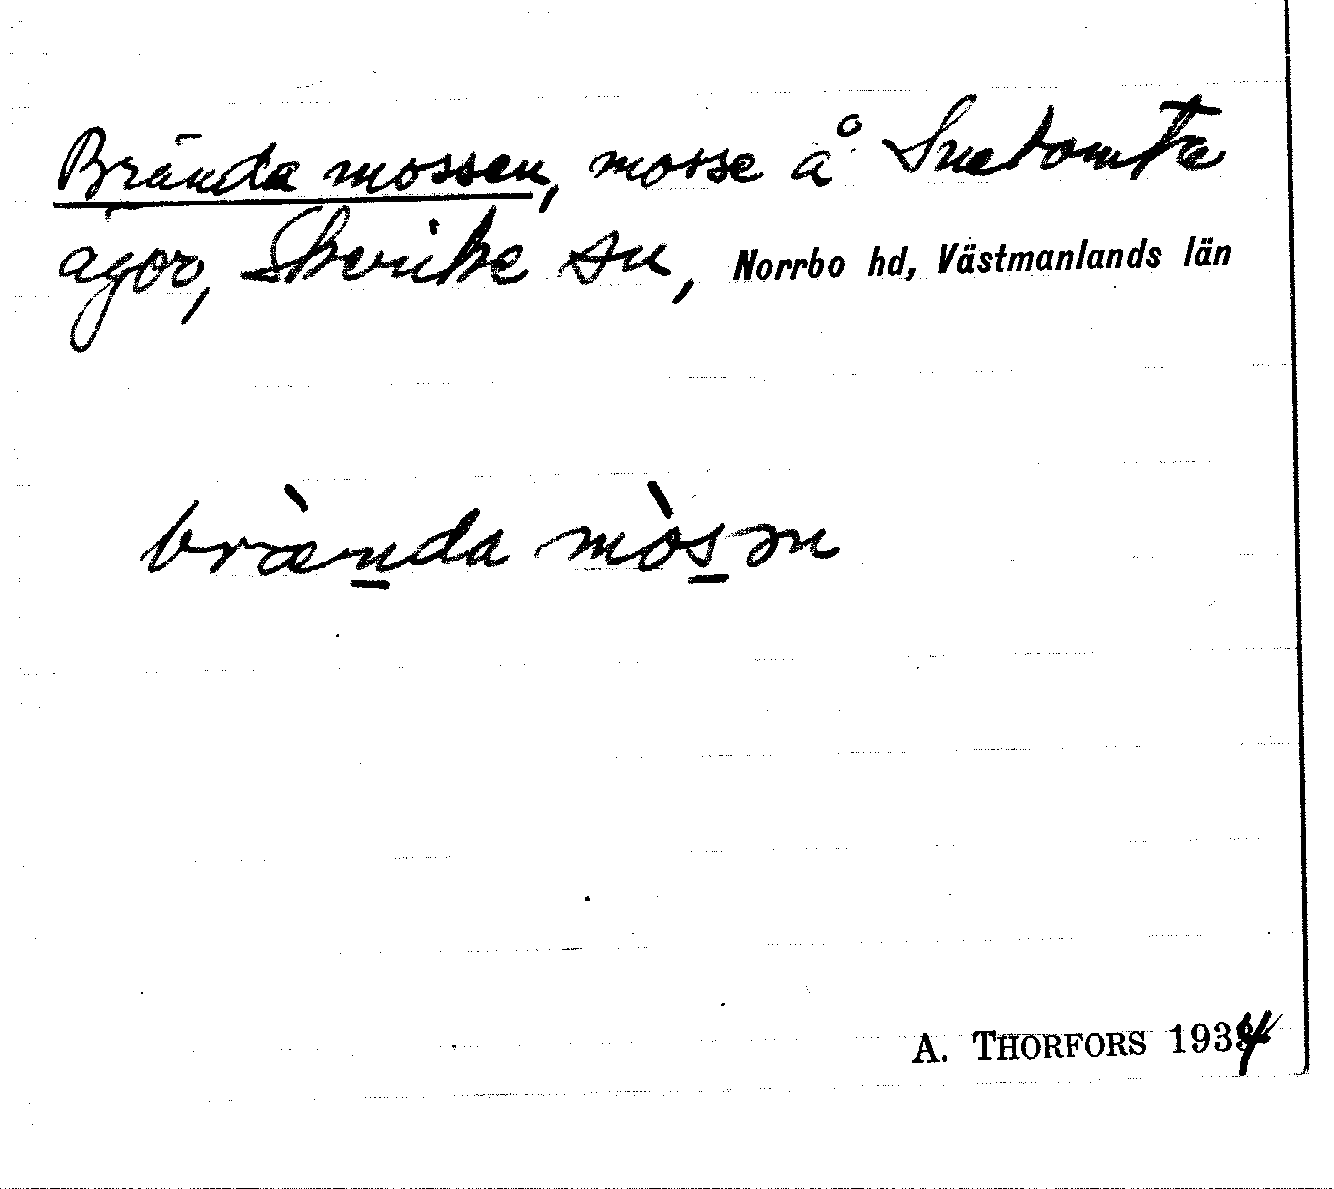 Brända mossen, mosse å Smetomta
ägor, Skerike sn, Norrbo hd, Västmanlands län
bræ̀nda mòsən
A. THORFORS 1934